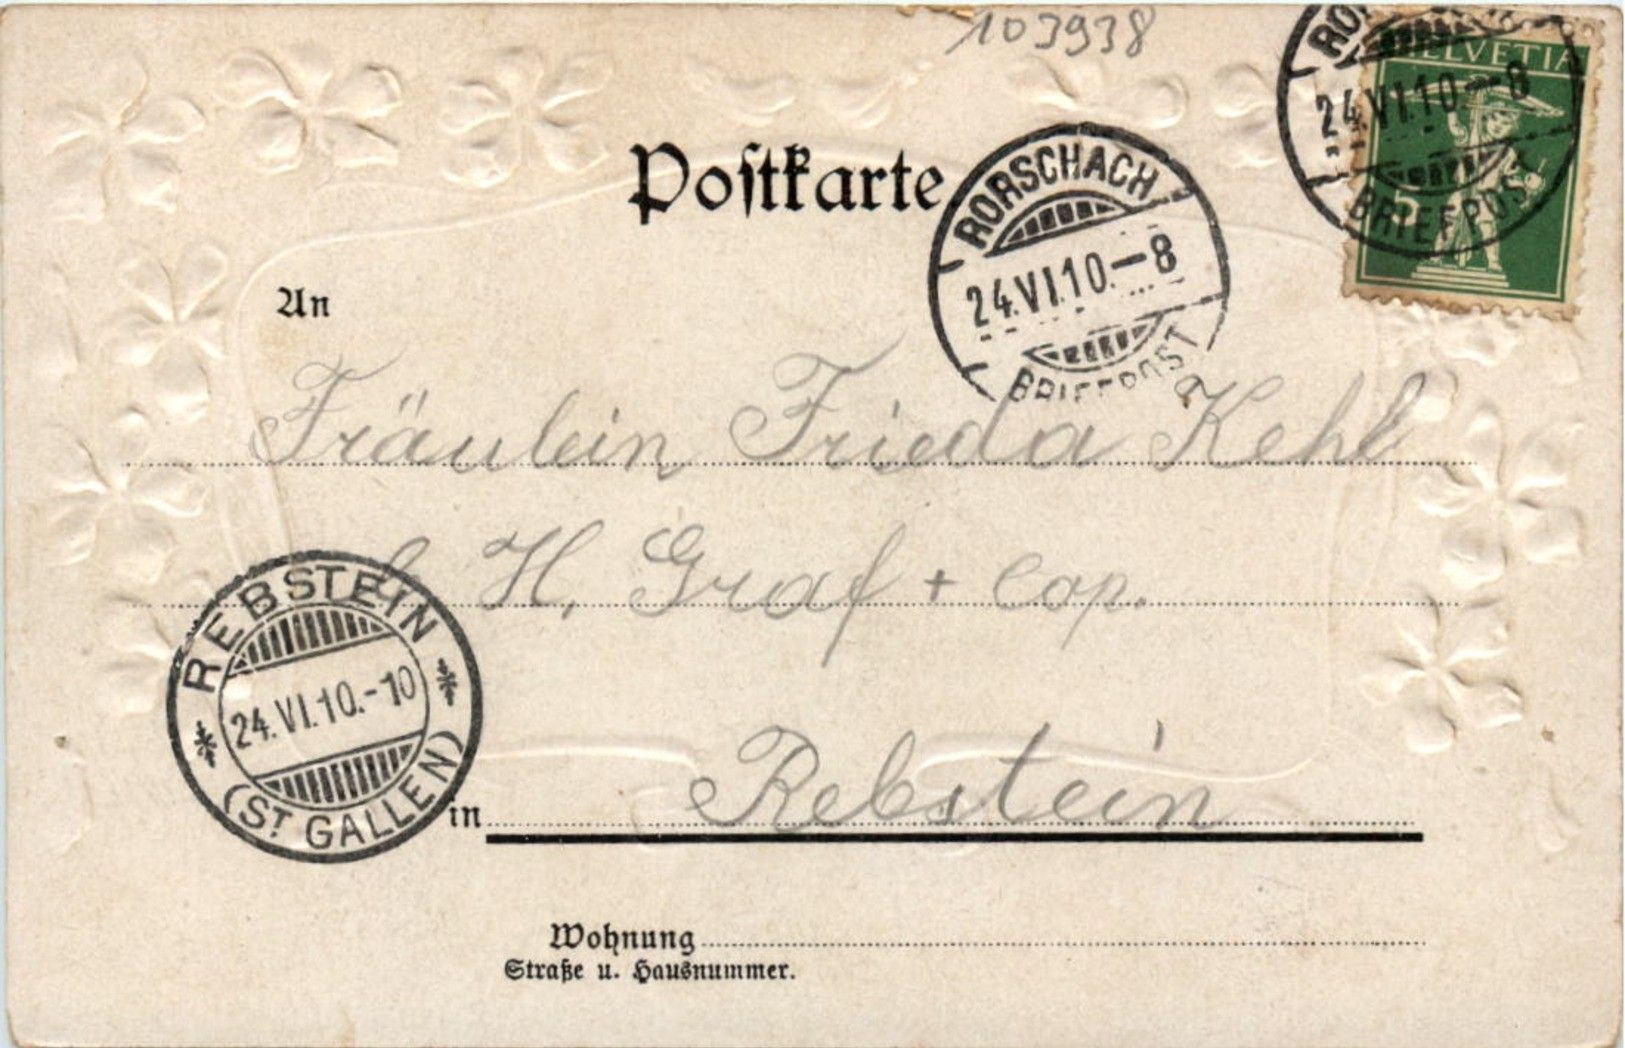 103938
HELVETIA
24.VI.10-8
BRIEFPOST
5
Postkarte
RORSCHACH
24.VI.10.-8
BRIEFPOST
An
Fräulein Frieda Kehl
H. Graf + Cop.
REBSTEIN
24.VI.10.-10
(ST. GALLEN)
in Rebstein
Wohnung
Straße u. Hausnummer.